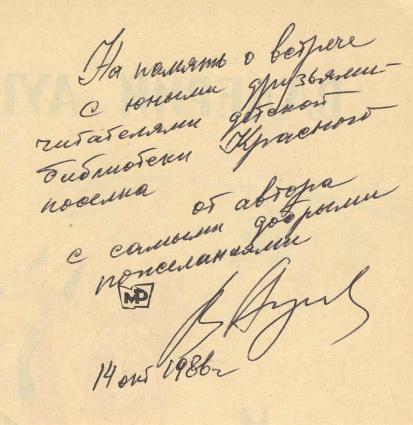 На память о встрече
с юными друзьями-
читателями детской
библиотеки Красной
поселка
от автора
с самыми добрыми
пожеланиями
МР
14 окт 1986 г